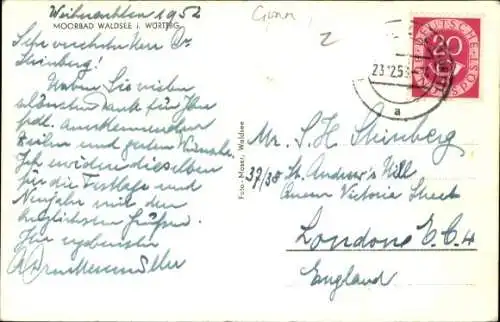 Weihnachten 1952
MOORBAD WALDSEE i. WÜRTTBG.
Sehr verehrter Herr Dr
Steinberg!
Haben Sie vielen
schönsten Dank für Ihre
frdl. anerkennenden
Zeilen und guten Wünsche.
Ich erwidere dieselben
für die Festtage und
Neujahr mit den
herzlichsten Grüßen.
Ihr ergebenster
Foto-Moser, Waldsee
2
DEUTSCHE
20
POST
23.12.53
a
Mr. S. H. Steinberg
37/38 St. Andrew's Hill
Queen Victoria Street
London E.C.4
England